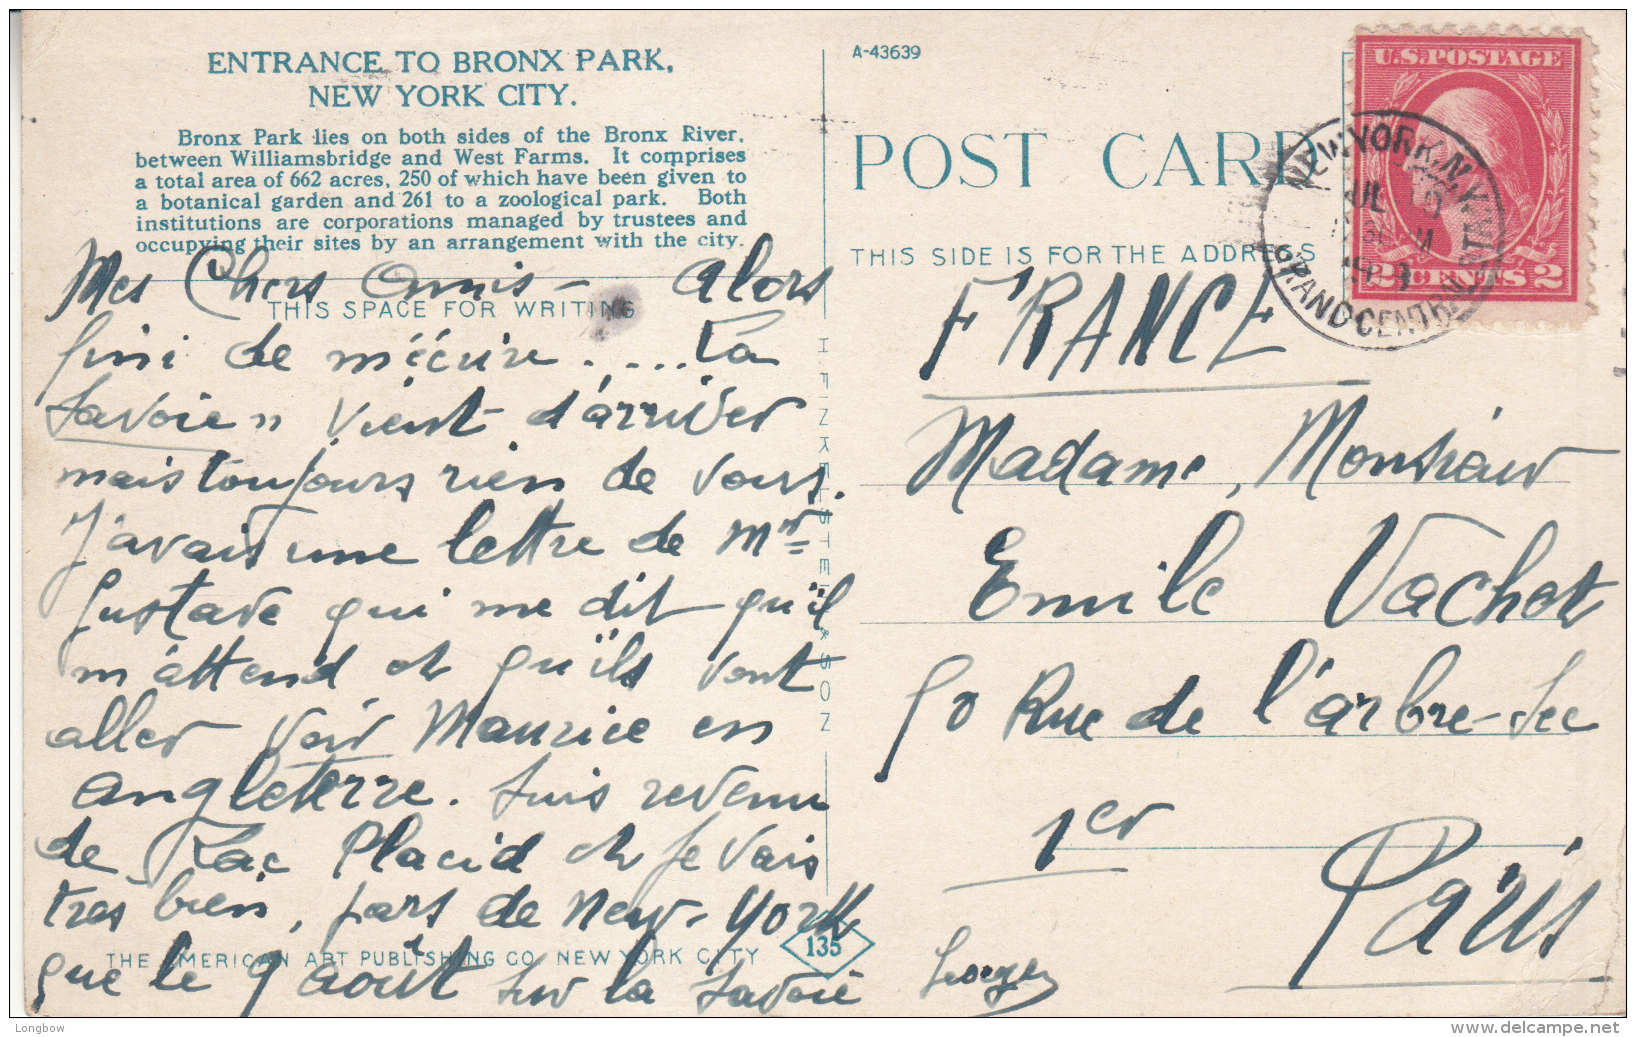 ENTRANCE TO BRONX PARK,
NEW YORK CITY.
Bronx Park lies on both sides of the Bronx River,
between Williamsbridge and West Farms. It comprises
a total area of 662 acres, 250 of which have been given to
a botanical garden and 261 to a zoological park. Both
institutions are corporations managed by trustees and
occupying their sites by an arrangement with the city.
THIS SPACE FOR WRITING
Mes Chers Amis – Alors
fini de m'écrire ..... "La
Savoie" vient d'arriver
mais toujours rien de vous.
J'avais une lettre de Mr
Gustave qui me dit qu'il
m'attend et qu'ils vont
aller voir Maurice en
Angleterre. Suis revenu
de Lac Placid et je vais
très bien, pars de New-York
que le 9 août sur la Savoie
Georges
THE AMERICAN ART PUBLISHING CO. NEW YORK CITY
135
H. FINKELSTEIN & SON
A-43639
POST CARD
THIS SIDE IS FOR THE ADDRESS
U.S. POSTAGE
2 CENTS 2
NEW YORK, N.Y.
JUL
GRAND CENTRAL STA.
FRANCE
Madame, Monsieur
Emile Vachet
50 Rue de l'arbre-Sec
1er
Paris
Longbow
www.delcampe.net